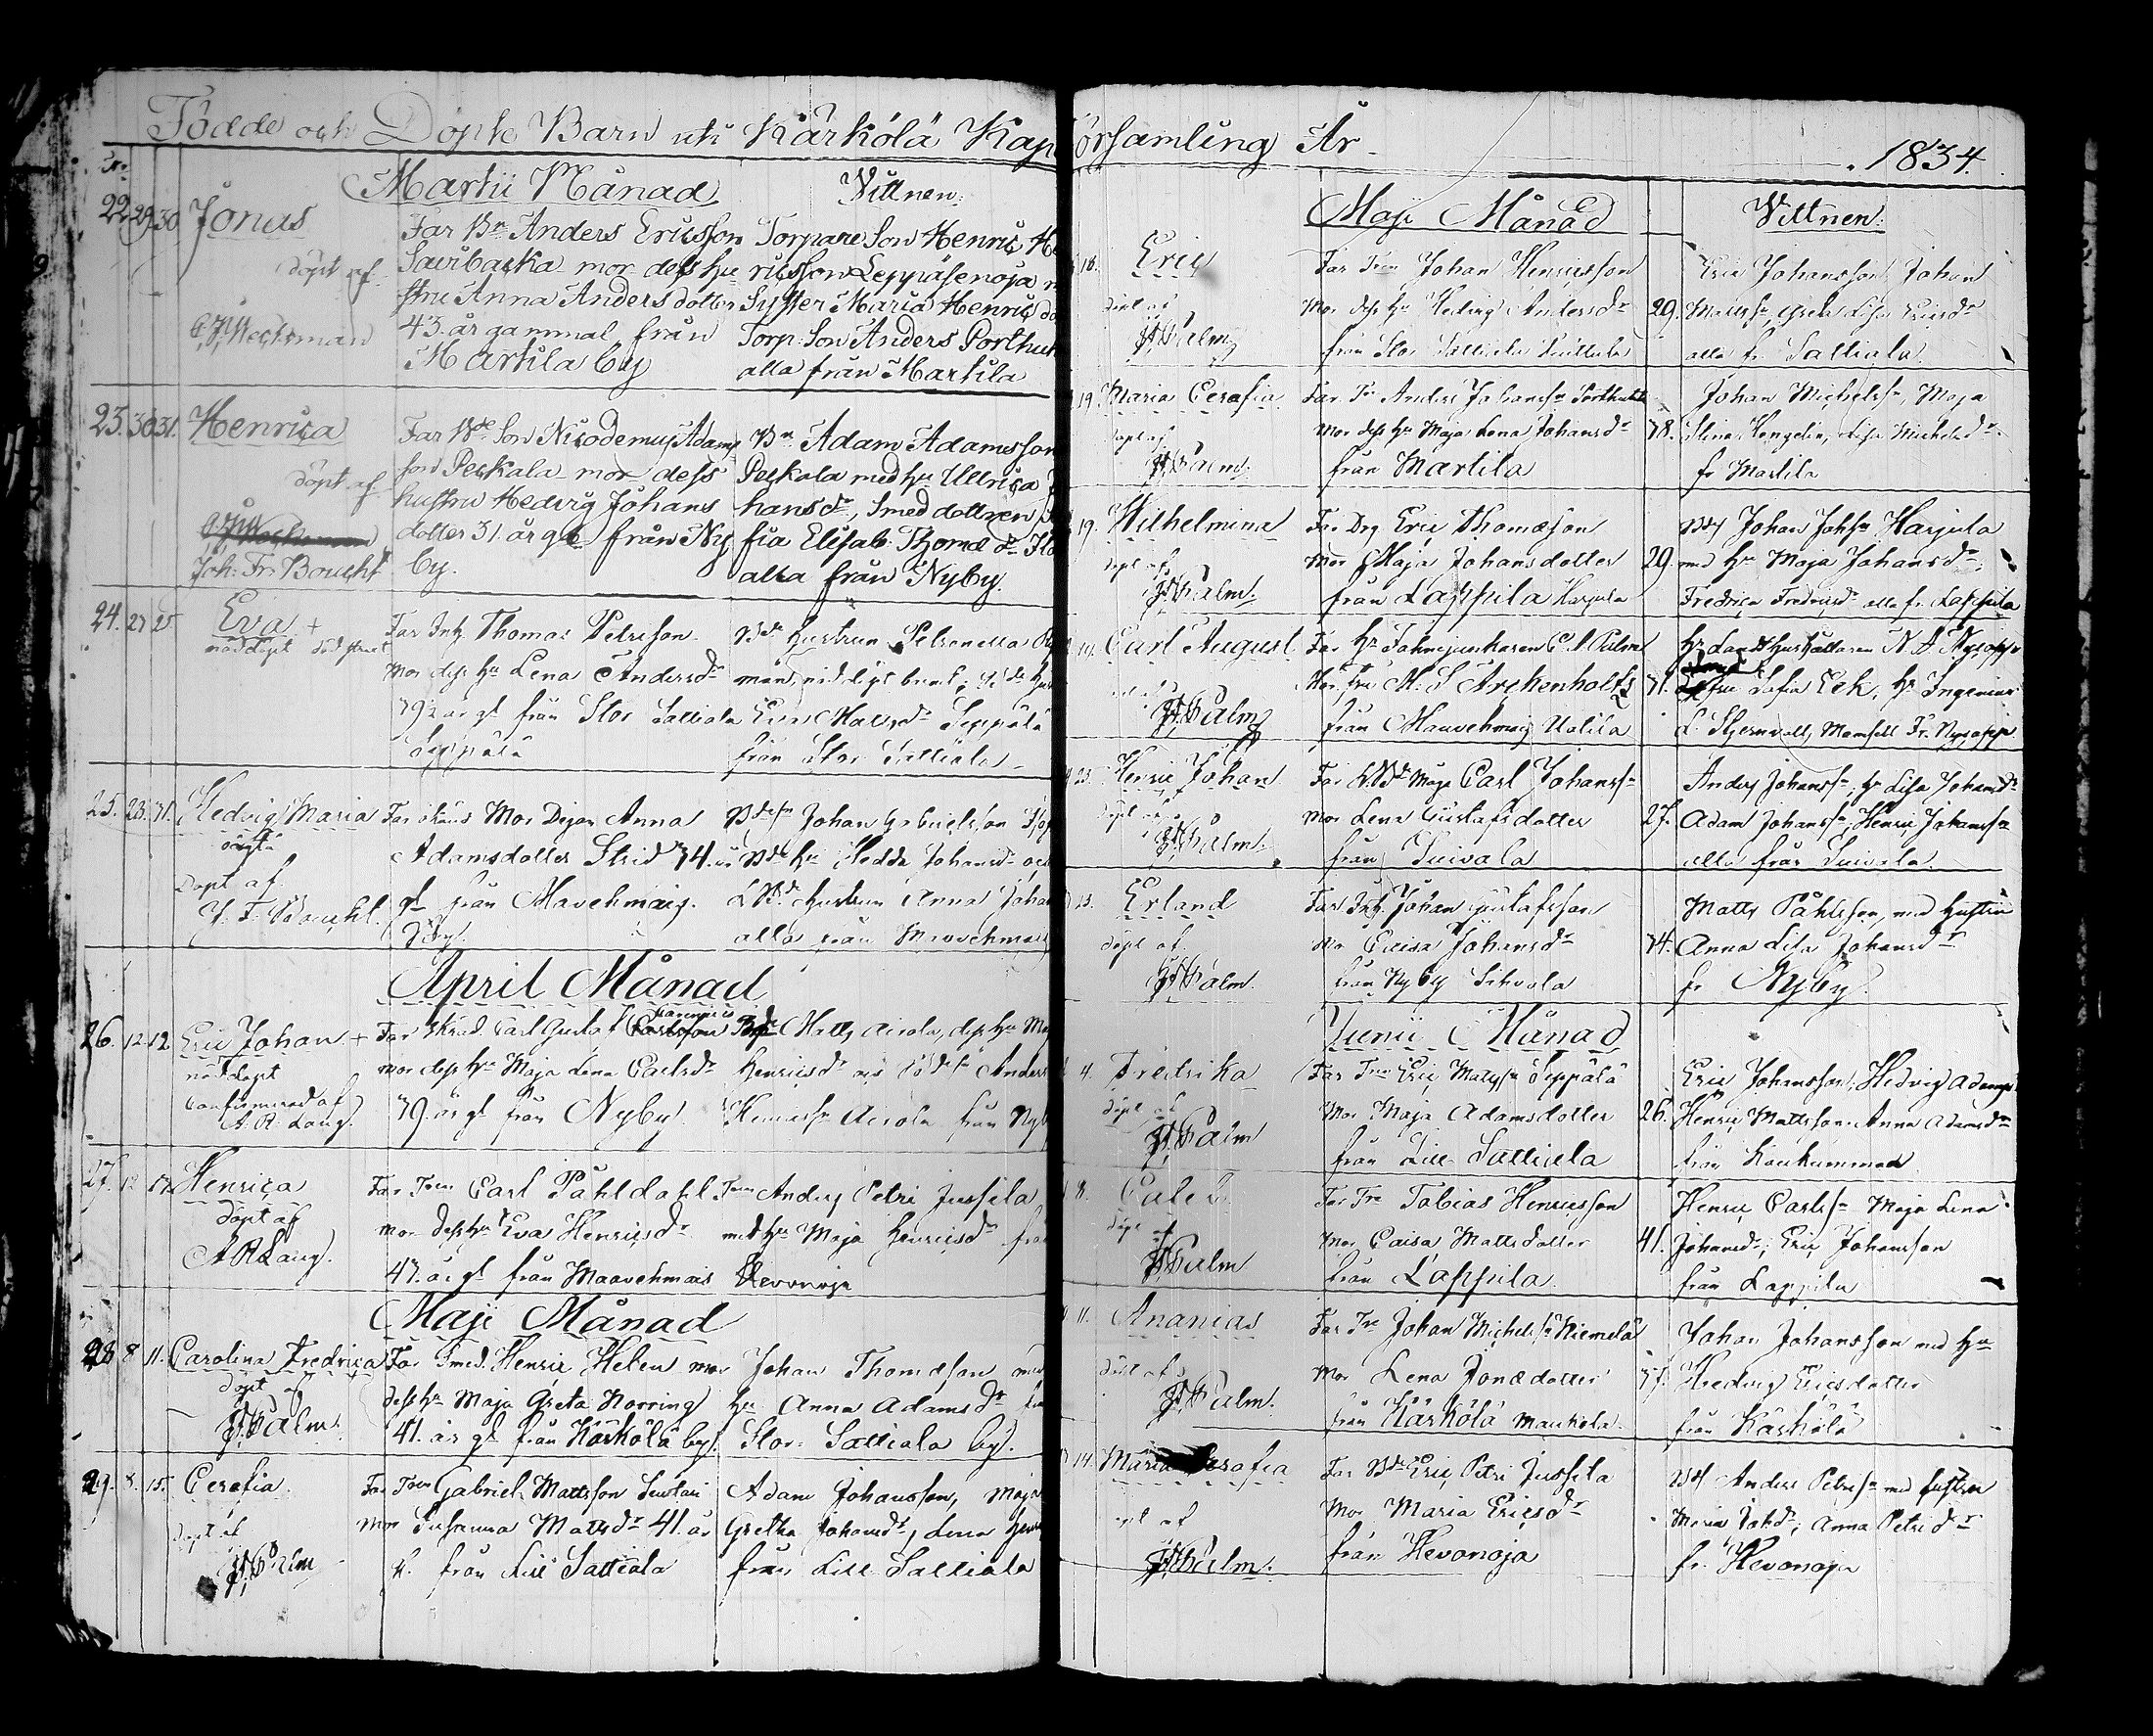 Födde och Döpte Barn uti Kärkölä Kap
Martii Månad
Vittnen:
22. 29 30 Jonas
döpt af
Far Bn Anders Ericsson
Savibacka mor dess hu
stru Anna Anders dotter
43. år gammal från
Martila by
Torpare Son Henric He
ricsson Leppäsenoja m
Syster Maria Henric do
Torp. Son Anders Porthu
alla från Martila
23. 30 31. Henrica
döpt af
Joh: Fr: Boucht
Far Bde Son Nicodemus Adams
son Peckala mor dess
hustru Hedvig Johans
dotter 31. år gl från Ny
by.
Bn Adam Adamsson
Peckala med hu Ullrica
hansdr, Smed dottren
fia Elisab. Thomæ dr
alla från Nyby.
24. 27 Eva +
nöddöpt
Far Inh. Thomas Petrison
Mor dess hu Lena Andersdr
år gl från Stor Sattiala
Seppälä
Bde hustrun Petronella
Eva Mattsdr Seppälä
från Stor Sattiala
25. 23. 31. Hedvig Maria
oägta
Döpt af
J. F. Boucht.
Far okänd Mor Pigan Anna
Adamsdotter Strid 34. år
gl från Mavehmais
By.
Johan Gabrielsson
Bde hu Hedda Johansd
hustrun Anna Johan
alla från Mavehmais
April Månad
26. 12 12 Eric Johan +
nöddöpt
Confirmerad af
A. R. Lang.
Far Skräd Carl Gustaf
mor dess hu Maja Lena Carlsdr
39. år gl från Nyby
Matts Airola, dess hu Ma
Henricsdr och Anders
Henricss Airola från Nyb
27. 12 Henrica
döpt af
A R Lang.
Far Torn Carl Påhldahl
mor dess hu Eva Henricsdr
47. år gl från Maavehmais
Torn Anders Petri Jussila
med hu Maja Henricsdr från
Hevonoja
Maji Månad
28 8 11. Carolina Fredrica
döpt af
J. Palm.
Far Smed. Henric Helen mor
dess hu Maja Greta Norring
41. år gl från Kärkölä by.
Johan Thomæson med
hu Anna Adamsdr från
Stor Sattiala by.
29. 8. 15. Cerafia.
döpt af
J. Palm
Far Torn Gabriel Mattsson
Mor Susanna Mattsdr 41. år
från Lill Sattiala
Adam Johansson, Maja
Gretha Johansdr, Lena Henr
från Lill Sattiala
örsamling År 1834.
Maji Månad
Vittnen:
18. Eric
döpt af
J. Palm
Far Torn Johan Henricsson
Mor dess hu Hedvig Andersdr
från Stor Sattiala
29.
Eric Johansson, Johan
Mattss, Greta Lisa Ericsdr
alla fr Sattiala
19. Maria Cerafia
döpt af
J. Palm.
Far Tn Anders Johanss Porthu
Mor dess hu Maja Lena Johansdr
från Martila
38.
Johan Michelss, Maja
Stina Lisa Michelsdr
fr Martila
19. Wilhelmina
döpt af
J. Palm.
Far Drg Eric Thomæson
Mor Maja Johansdotter
från Lappila Harjula
29.
Johan Johss Harjula
med hu Maja Johansdr,
Fredrica Fredricsdr alla fr Lappila
Carl August
J. Palm
Far Hr Fahnejunkaren C. A. Palm
Mor Fru M. S Archenholtz
från Mauvehmais Uotila
31.
Hr Landshushållaren N. A Nysopp
fru Sofia Eek, Hr Ingeniör
L. Stjernvall, Mamsell Fr. Nysopp
23. Henric Johan
döpt af
J. Palm.
Far Carl Johanss
Mor Lena Gustafsdotter
från Suivala
27.
Anders Johanss, hu Lisa Johansdr
Adam Johanss, Henric Johanss
alla från Suivala.
23. Erland
döpt af
J. Palm.
Far Inh. Johan Gustafsson
Mor Caisa Johansdr
från Nyby
34.
Matts Påhlsson, med hustru
Anna Lisa Johansdr
fr Nyby
Junii Månad
4. Fredrika
döpt af
J. Palm
Far Torn Eric Matss Seppälä
Mor Maja Adamsdotter
från Lill Sattiala
26.
Eric Johansson, Hedvig Adams
Henric Mattsson, Anna Adamsdr
från
8. Caleb.
döpt af
J. Palm
Far Trn Tobias Henricsson
Mor Caisa Mattsdotter
från Lappila
41.
Henric Carlss Maja Lena
Johansdr, Eric Johansson
från Lappila
11. Ananias
döpt af
J. Palm.
Far Trn Johan Michelss Niemelä
Mor Lena Jonædotter
från Kärkölä Mankola
37.
Johan Johansson med hu
Hedvig Ericsdotter
från Kärkölä
14. Maria Cerafia
J. Palm.
Far Bde Eric Petri Jussila
Mor Maria Ericsdr
från Hevonoja
Anders Petriss med hustru
Maria Johdr; Anna Petri dr
fr. Hevonoja